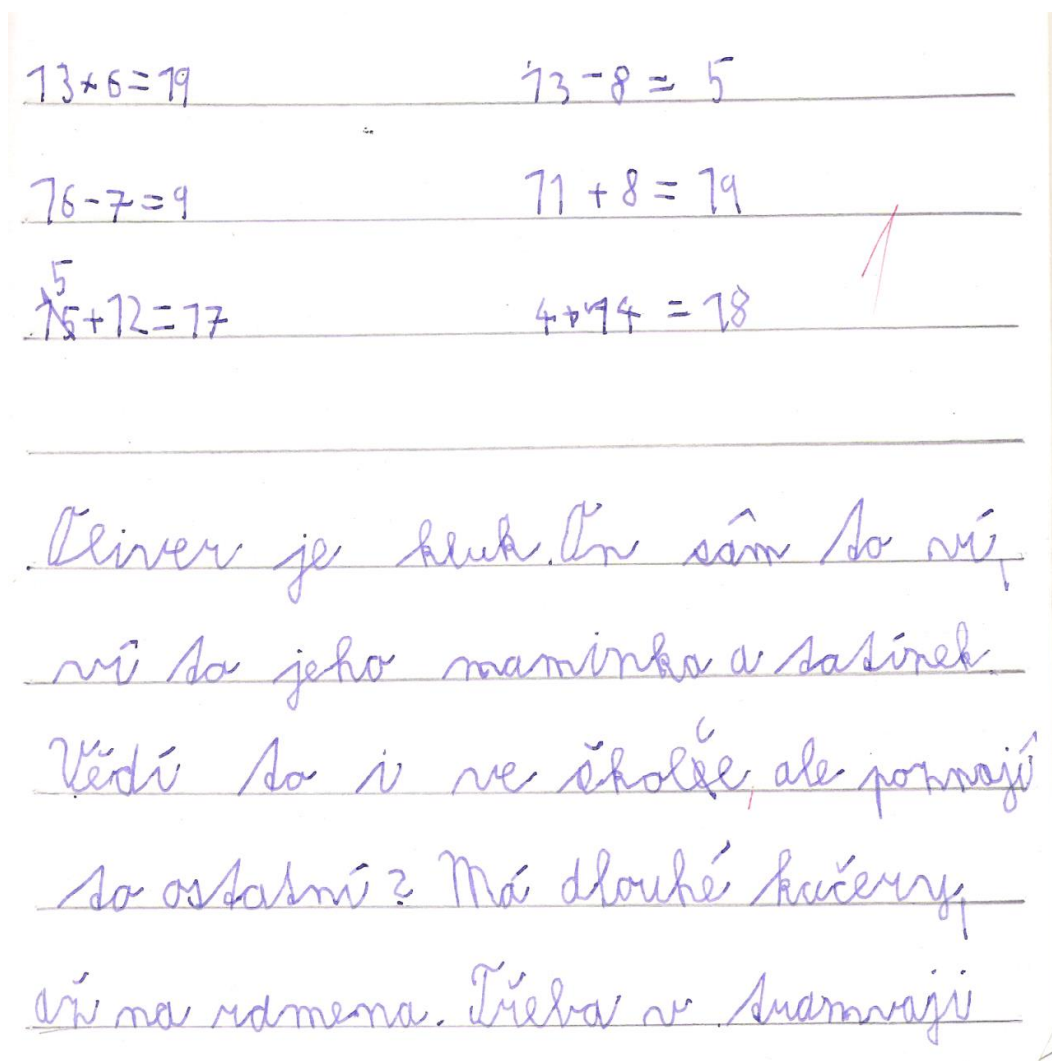 13+6=19 13-8=5
16-7=9 11+8=19
1
5+12=17 4+14=18
Oliver je kluk. On sám to ví,
ví to jeho maminka a tatínek.
Vědí to i ve školce, ale poznají
to ostatní? Má dlouhé kučery,
až na ramena. Třeba v tramvaji